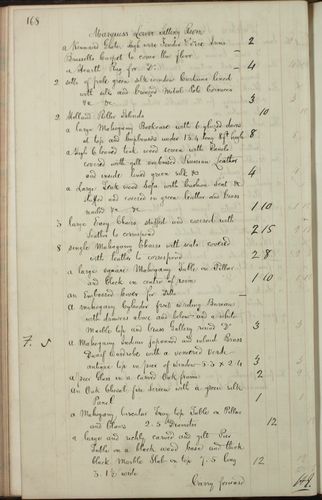 168
Marquess Lower Sitting Room
a Register Stove, high wire Fender & Fire Irons 2
Brussels Carpet to cover the floor
a Hearth Rug for Do 4
2 sets of pale green silk window Curtains lined
with silk and bronzed Metal Pole Cornices
&c &c 3
2 Holland Roller Blinds 10
a large Mahogany Bookcase with glazed doors
at top and cupboards under 15.4 long 8ft high 8
a high
covered with gilt embossed Russian Leather
and inside lined green silk &c 4
a Large Teak wood Sofa with Cushion Seat &c
stuffed and covered in green leather and brass
nailed &c &c 1 10
3 large Easy Chairs stuffed and covered with
leather to correspond 2 15
8 single Mahogany Chairs with seats covered
with leather to correspond 2 8
a large square Mahogany Table on Pillar
and Block in centre of room 1 10
an Embossed cover for Ditto
a mahogany Cylinder front writing Bureau
with drawers above and below and a white
Marble top and brass Gallery round Do 3
7. 5
a Mahogany Indian japanned and inlaid Brass
Dwarf Wardrobe with a veneered verde
antique top in pier of window 5.5 x 2.4 3
a pier Glass in a carved Oak frame 2
an Oak Cheval fire screen with a green silk
Panel 1
a Mahogany circular Tray top Table on Pillar
and Claws 2.5 Diameter 12
a large and richly carved and gilt Pier
Table on a block wood base and thick
black Marble Slab on top 7.5 long 12
3.1½ wide
Carry forward